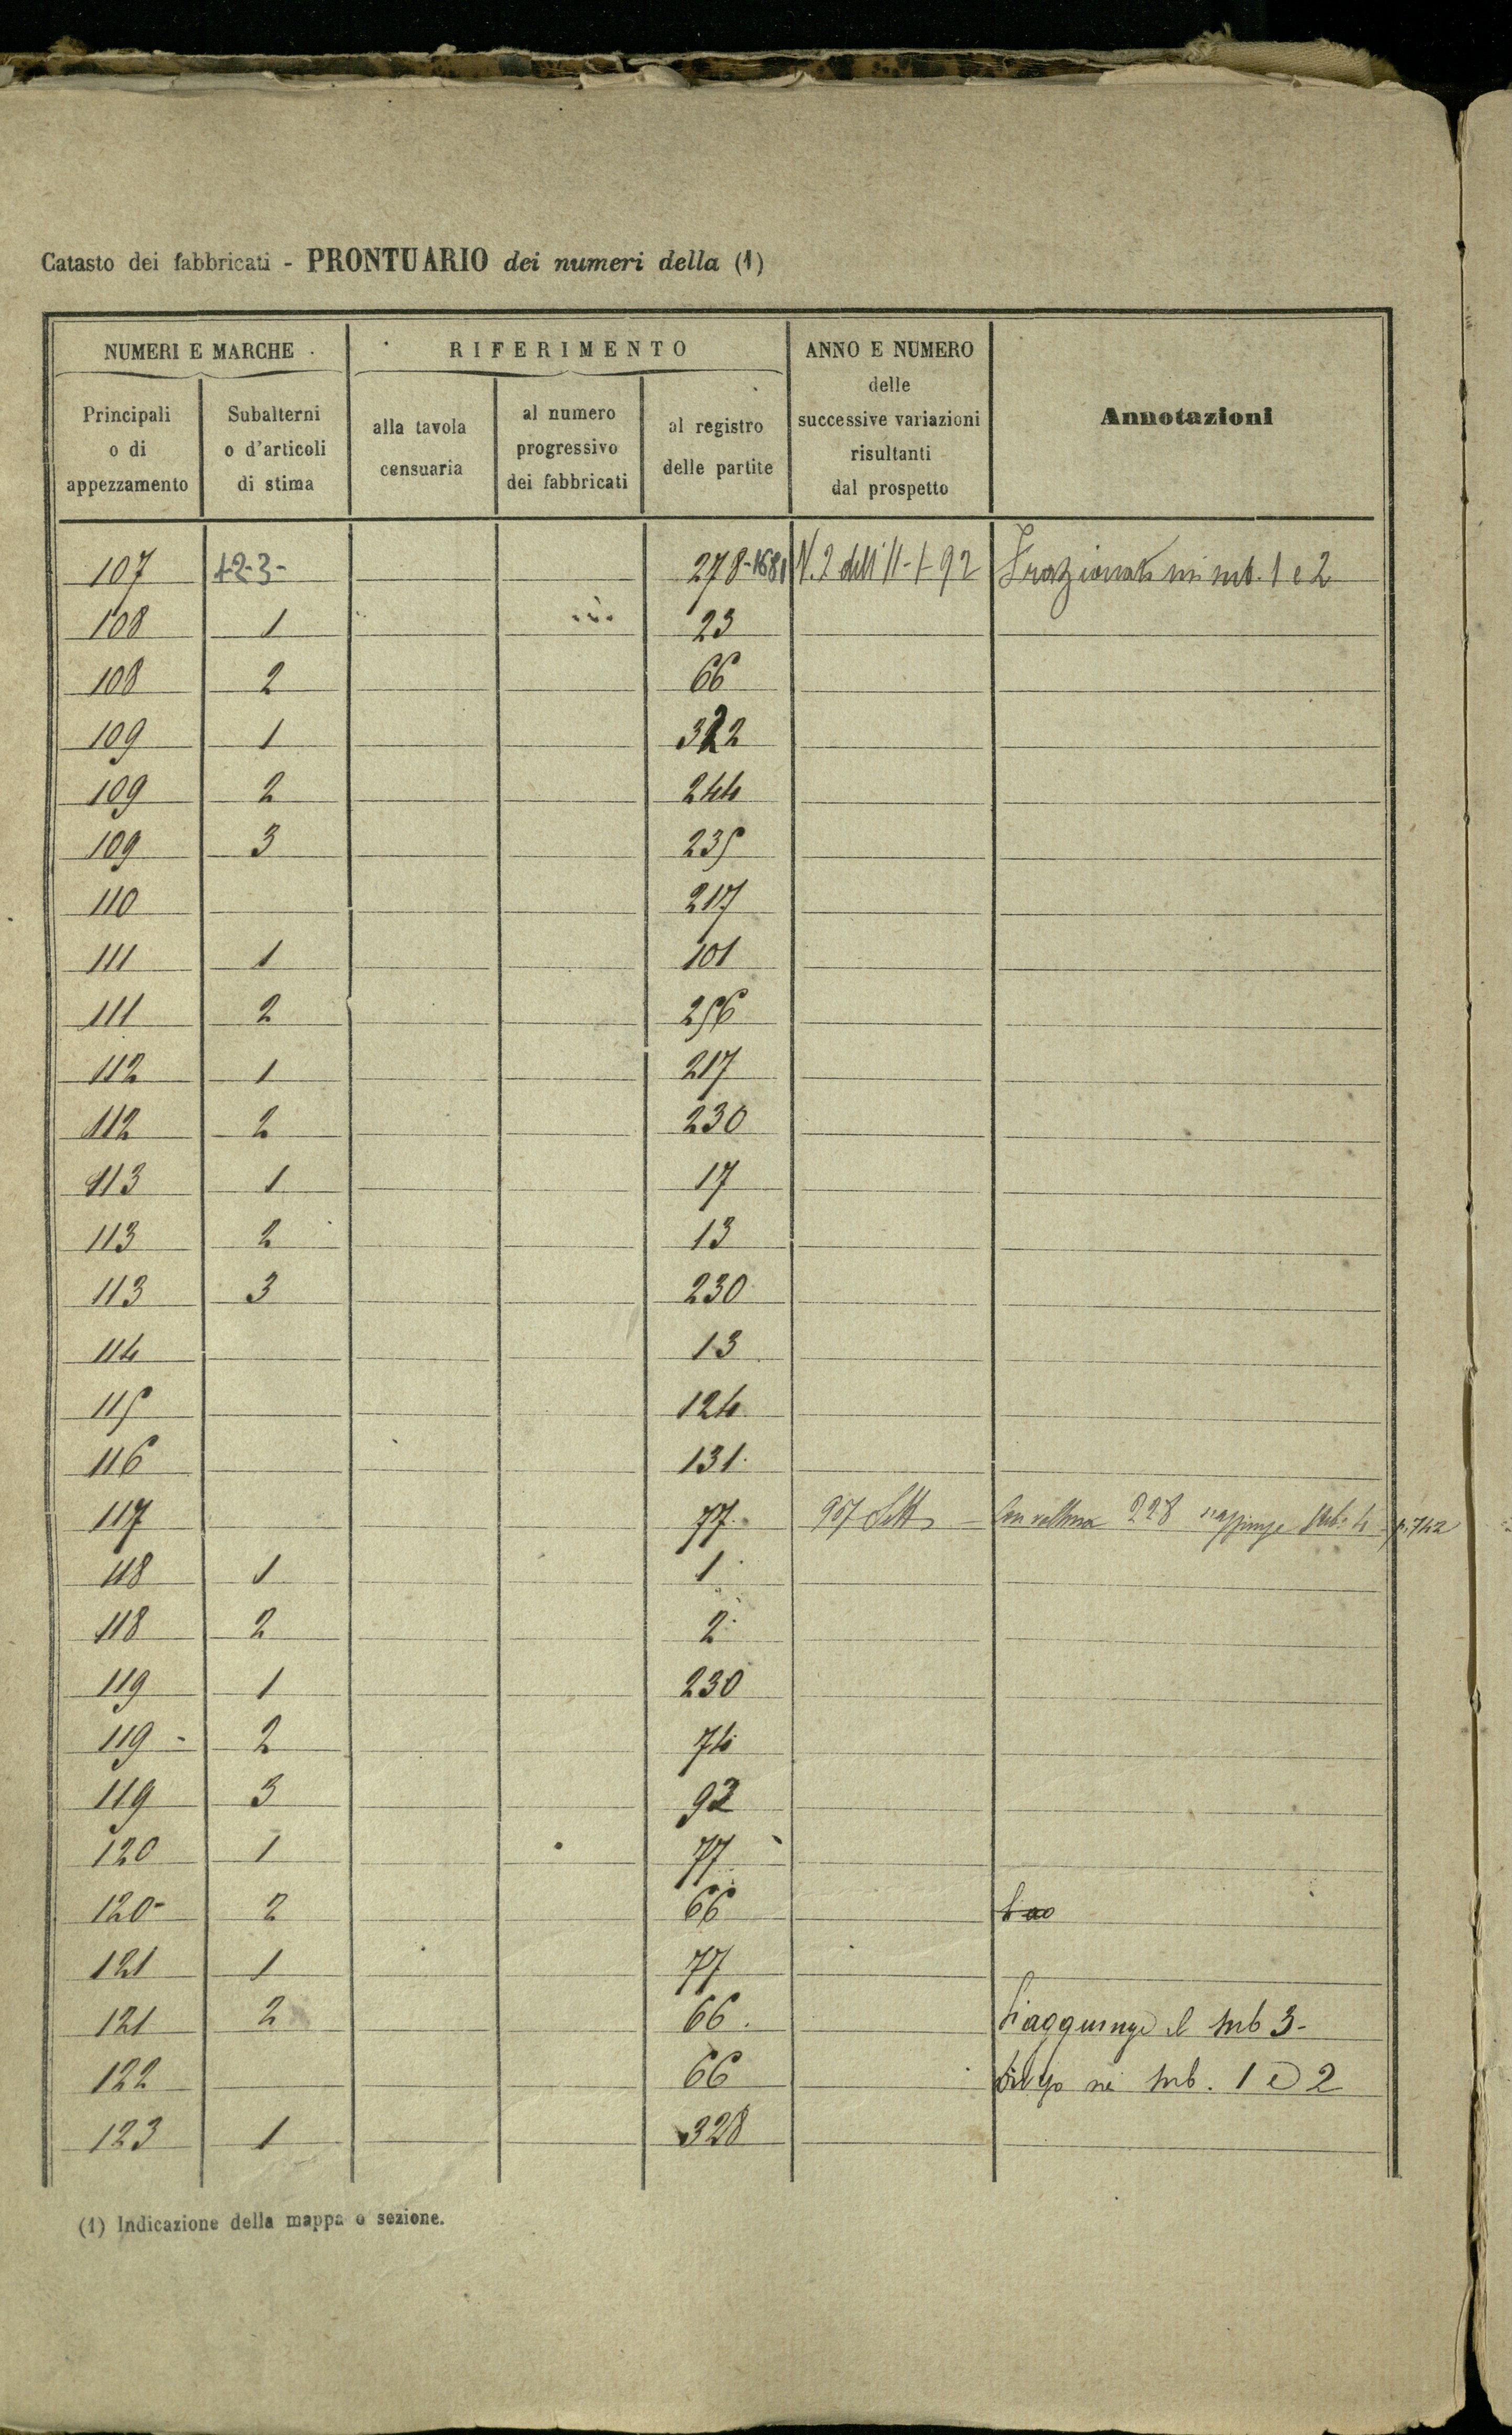 Catasto dei fabbricati - PRONTUARIO dei numeri della (1)
NUMERI E MARCHE
RIFERIMENTO
ANNO E NUMERO
delle
successive variazioni
risultanti
dal prospetto
Annotazioni
Principali
o di
appezzamento
Subalterni
o d'articoli
di stima
alla tavola
censuaria
al numero
progressivo
dei fabbricati
al registro
delle partite
107 1-2-3- 278-1681 N. 2 dell' 11-1-92 Frazionato in sub. 1 e 2
108 1 23
108 2 66
109 1 322
109 2 244
109 3 235
110 217
111 1 101
111 2 256
112 1 217
112 2 230
113 1 17
113 2 13
113 3 230
114 13
115 124
116 131
117 77 957 228 sub. 4 p. 742
118 1 1
118 2 2
119 1 230
119 - 2 74
119 3 92
120 1 77
120- 2 66
121 1 77
121 2 66. Si aggiunge il sub 3-
122 66 sub. 1 e 2
123 1 328
(1) Indicazione della mappa o sezione.